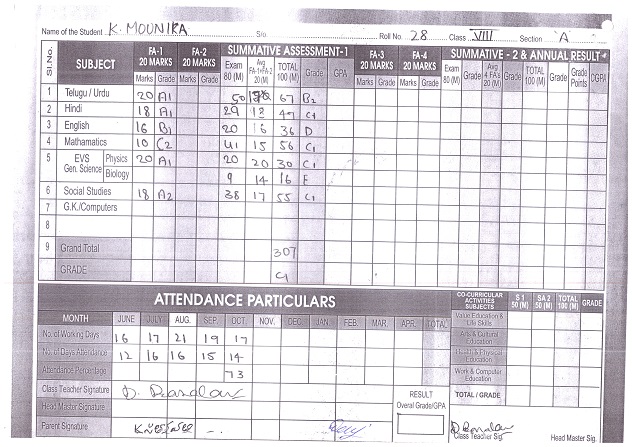 Name of the Student K. MOUNIKA S/o Roll No. 28 Class VIII Section 'A'
Sl.No. SUBJECT FA-1 20 MARKS FA-2 20 MARKS SUMMATIVE ASSESSMENT-1 FA-3 20 MARKS FA-4 20 MARKS SUMMATIVE - 2 & ANNUAL RESULT
Marks Grade Marks Grade Exam 80 (M) Avg FA-1+FA-2 20 (M) TOTAL 100 (M) Grade GPA Marks Grade Marks Grade Exam 80 (M) Grade Avg 4 FA's 20 (M) Grade TOTAL 100 (M) Grade Grade Points CGPA
1 Telugu / Urdu 20 A1 50 67 B2
2 Hindi 18 A1 29 18 47 C1
3 English 16 B1 20 16 36 D
4 Mathamatics 10 C2 41 15 56 C1
5 EVS Gen. Science Physics 20 A1 20 20 30 C1
Biology 9 14 16 E
6 Social Studies 18 A2 38 17 55 C1
7 G.K./Computers
8
9 Grand Total 307
GRADE C1
ATTENDANCE PARTICULARS
MONTH JUNE JULY AUG. SEP. OCT. NOV. DEC. JAN. FEB. MAR. APR. TOTAL
No. of Working Days 16 17 21 19 17
No. of Days Attendance 12 16 16 15 14
Attendance Percentage 73
Class Teacher Signature
Head Master Signature
Parent Signature
RESULT
Overal Grade/GPA
CO-CURRICULAR ACTIVITIES SUBJECTS S 1 50 (M) SA 2 50 (M) TOTAL 100 (M) GRADE
Value Education & Life Skills
Arts & Cultural Education
Health & Physical Education
Work & Computer Education
TOTAL / GRADE
Class Teacher Sig. Head Master Sig.